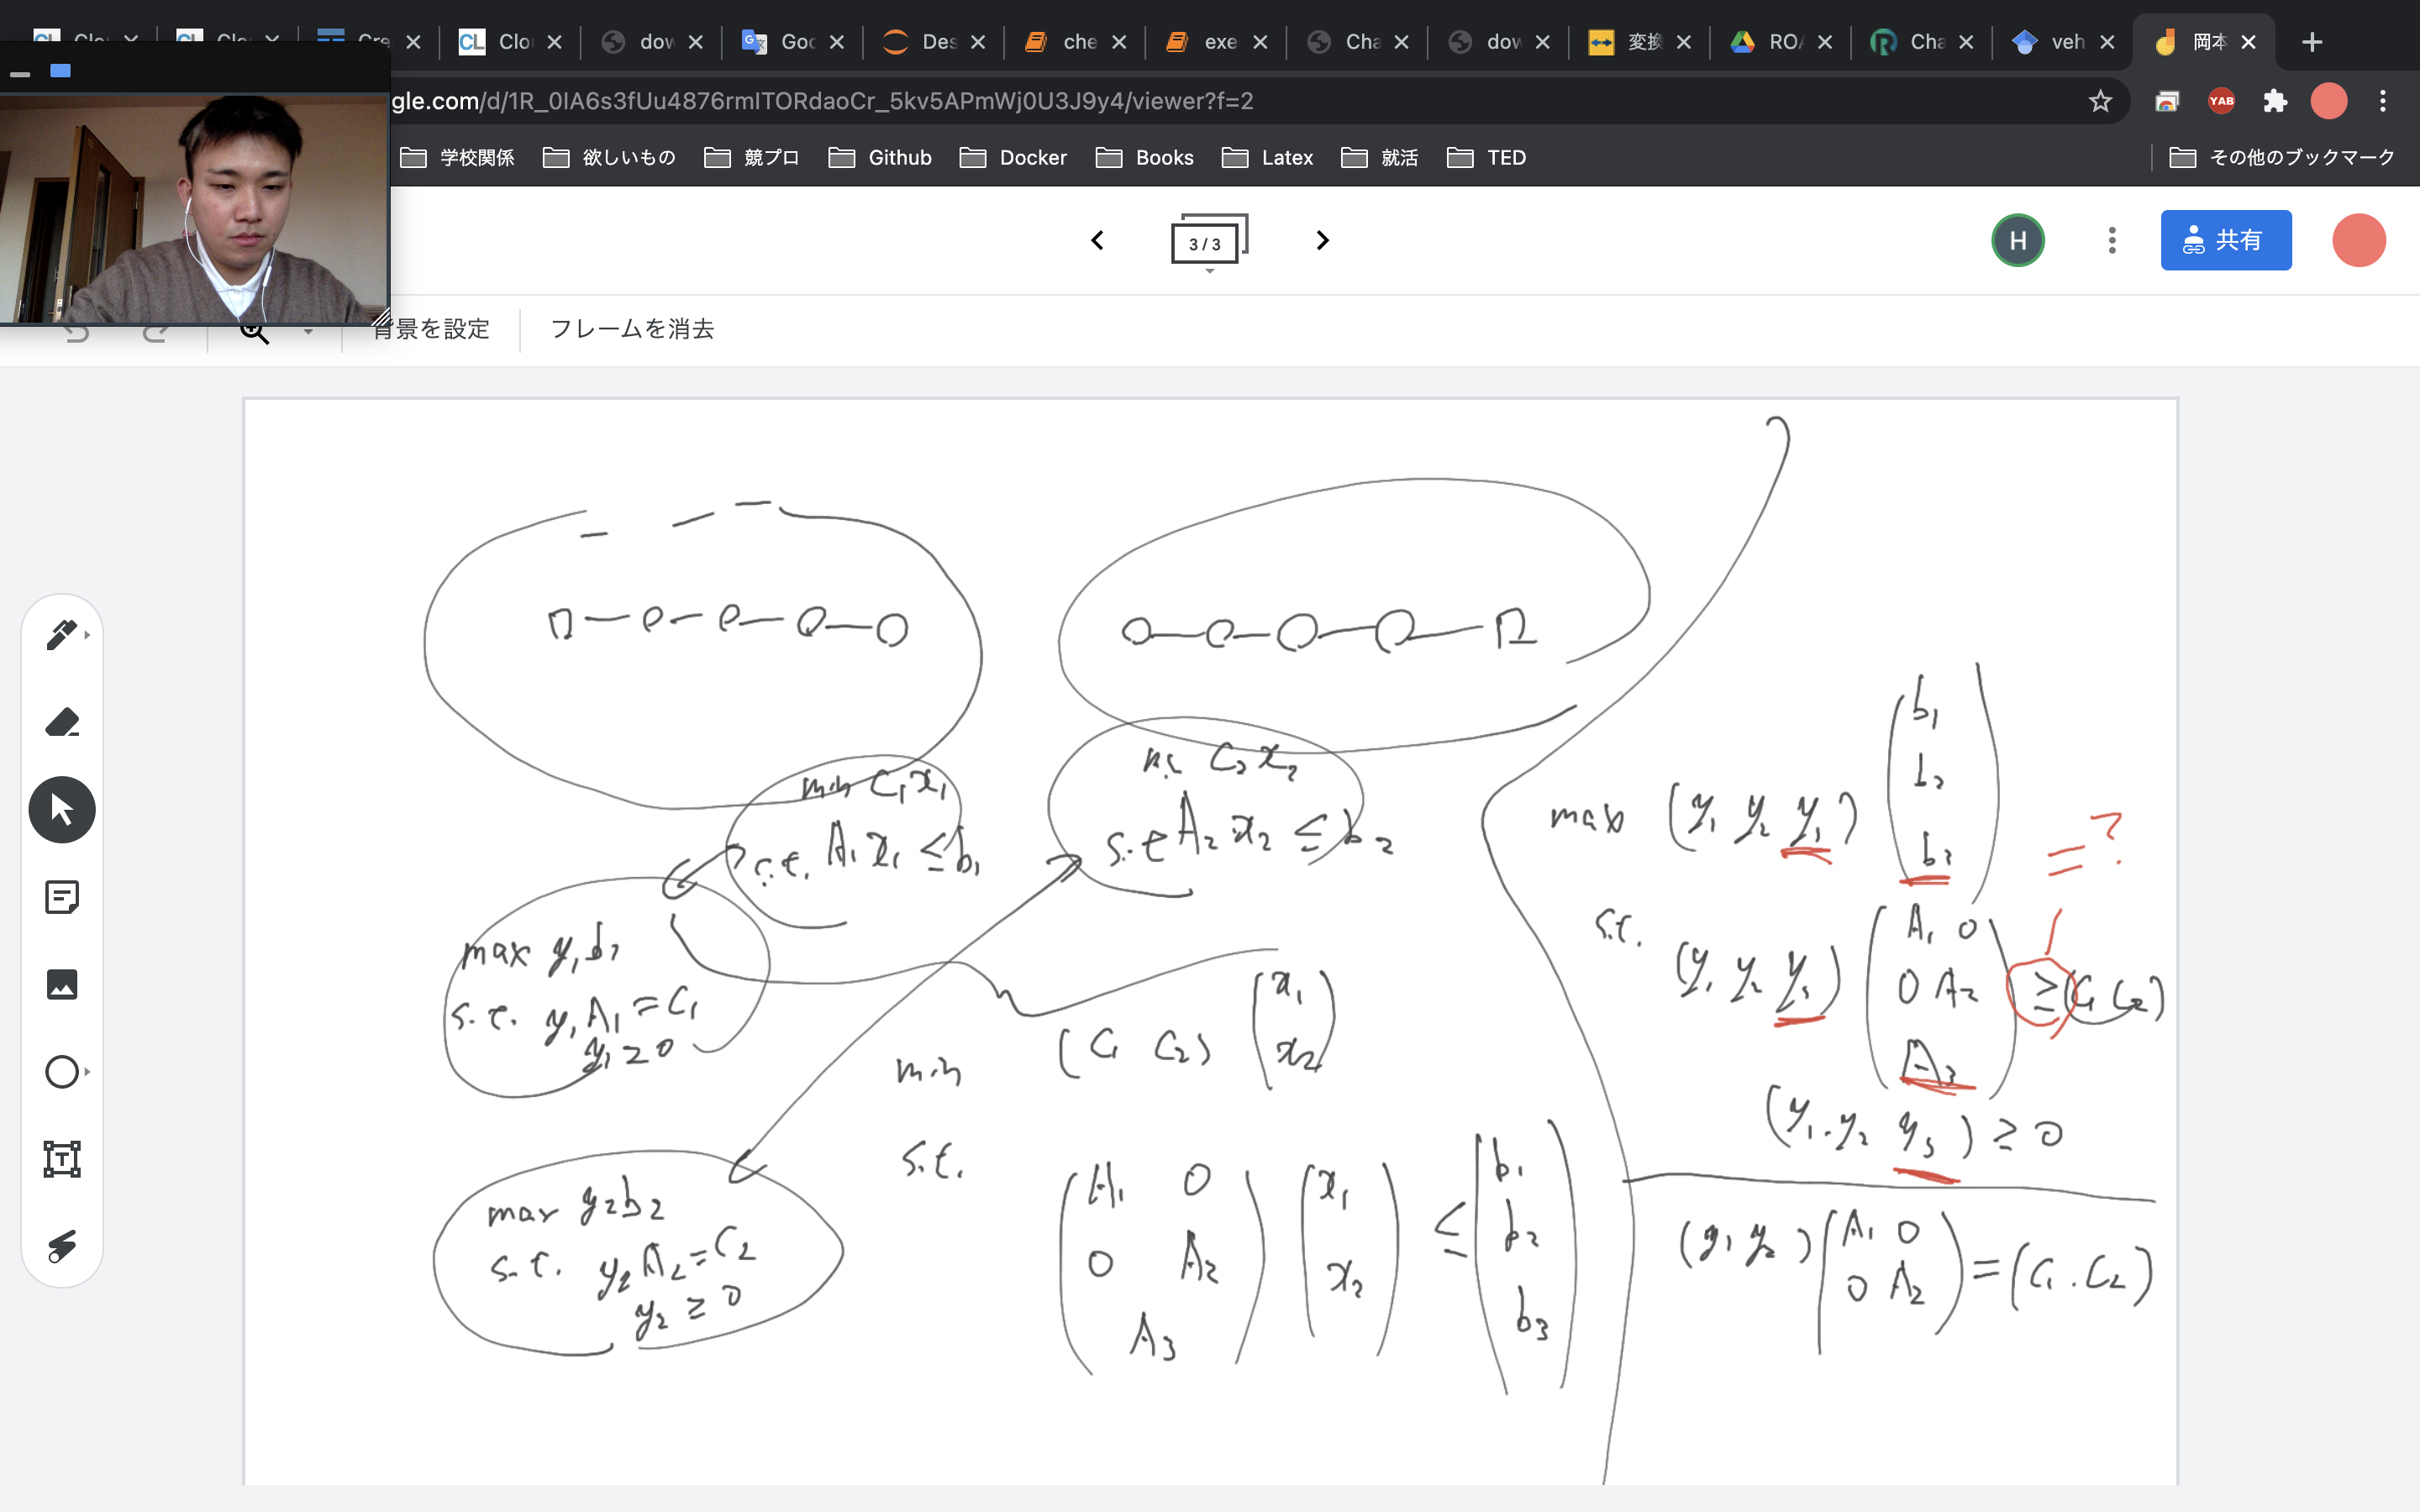 Clo
Cre
Clo
dow
Goo
Des
che
exe
Cha
dow
変換
RO
Cha
veh
岡本
gle.com/d/1R_0IA6s3fUu4876rmITORdaoCr_5kv5APmWj0U3J9y4/viewer?f=2
YAB
学校関係
欲しいもの
競プロ
Github
Docker
Books
Latex
就活
TED
その他のブックマーク
3 / 3
H
共有
背景を設定
フレームを消去
min C₁x₁
s.t. A₁x₁ ≤ b₁
C₂x₂
s.t A₂x₂ ≤ b₂
max y₁b₁
s.t. y₁A₁ = C₁
y₁ ≥ 0
max y₂b₂
s.t. y₂A₂ = C₂
y₂ ≥ 0
min (C₁ C₂) (x₁
x₂)
s.t. (A₁ 0
0 A₂
A₃) (x₁
x₂) ≤ (b₁
b₂
b₃)
max (y₁ y₂ y₃) (b₁
b₂
b₃)
= ?
s.t. (y₁ y₂ y₃) (A₁ 0
0 A₂
A₃) ≥ (C₁ C₂)
(y₁ . y₂ y₃) ≥ 0
(y₁ y₂) (A₁ 0
0 A₂) = (C₁ . C₂)